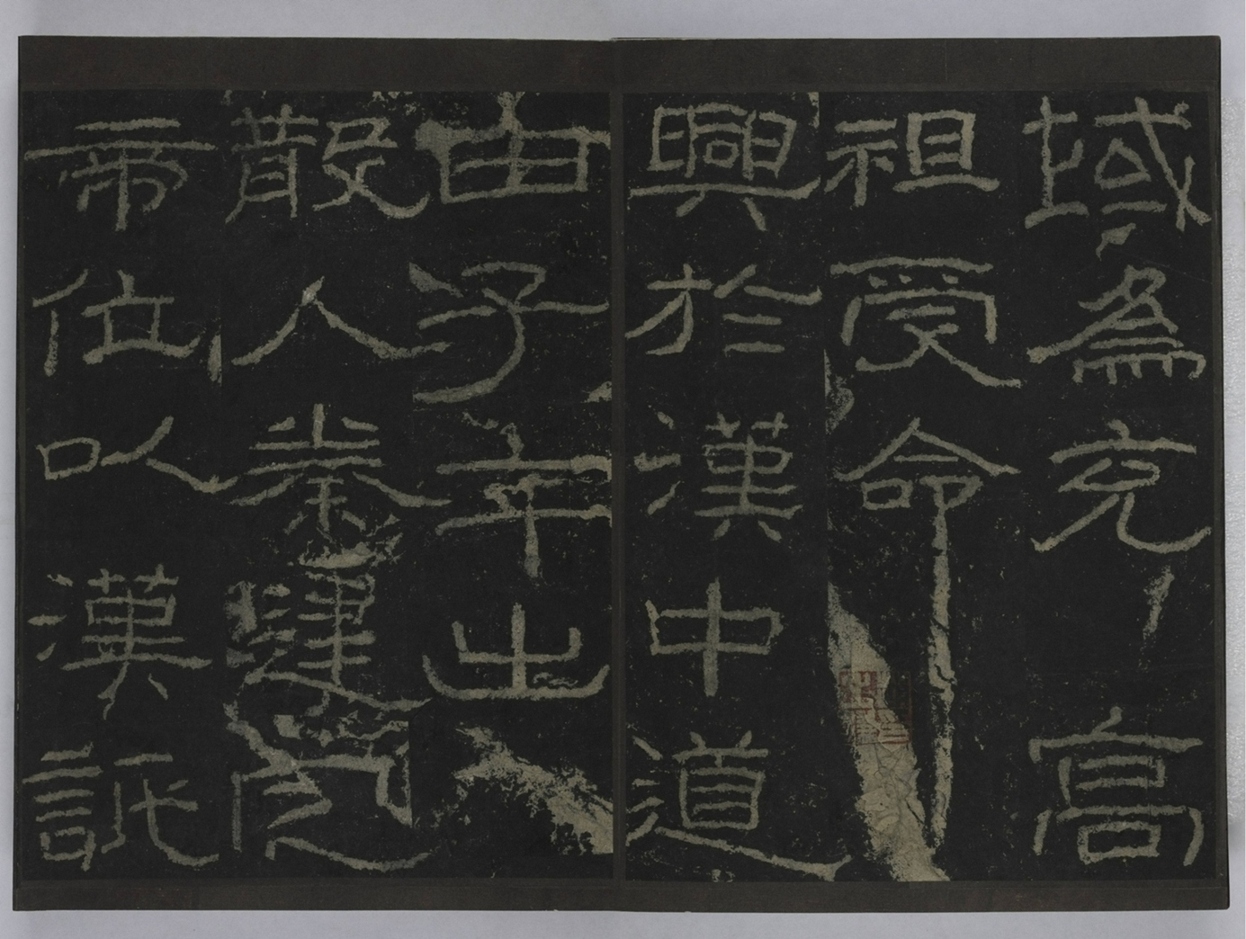 域為充高
祖受命
興於漢中道
由子午出
散入秦建定
帝位以漢詆